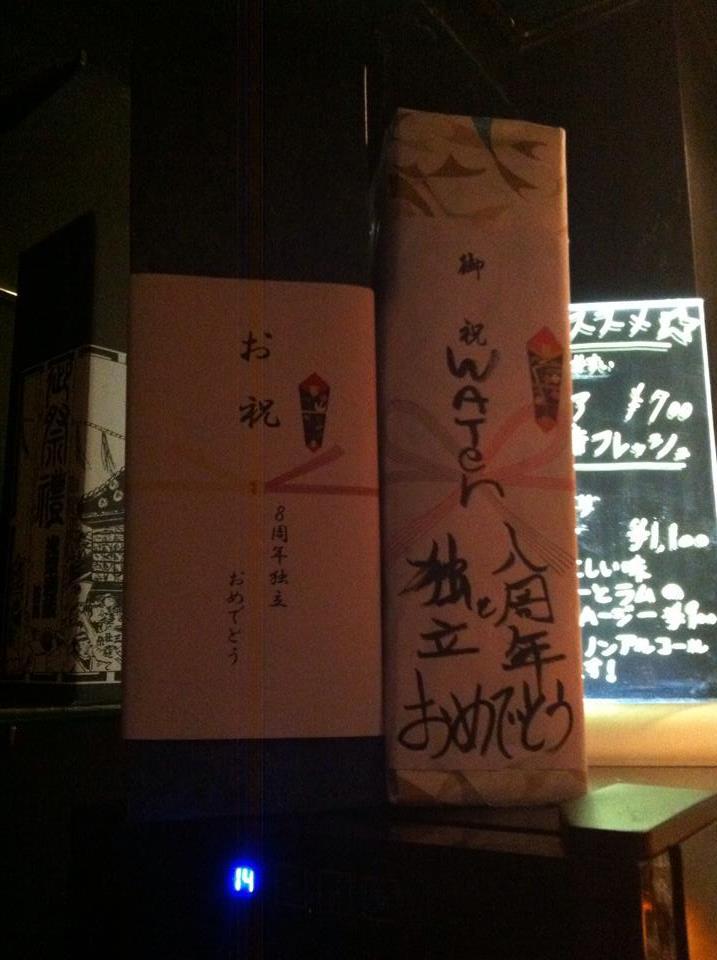 お祝
8周年独立
おめでとう
御祝
WATER
八周年と
独立
おめでとう
御祭禮
ススメ
¥700
フレッシュ
¥1,100
しい味
ーとラムの
ノンアルコール
す!
14